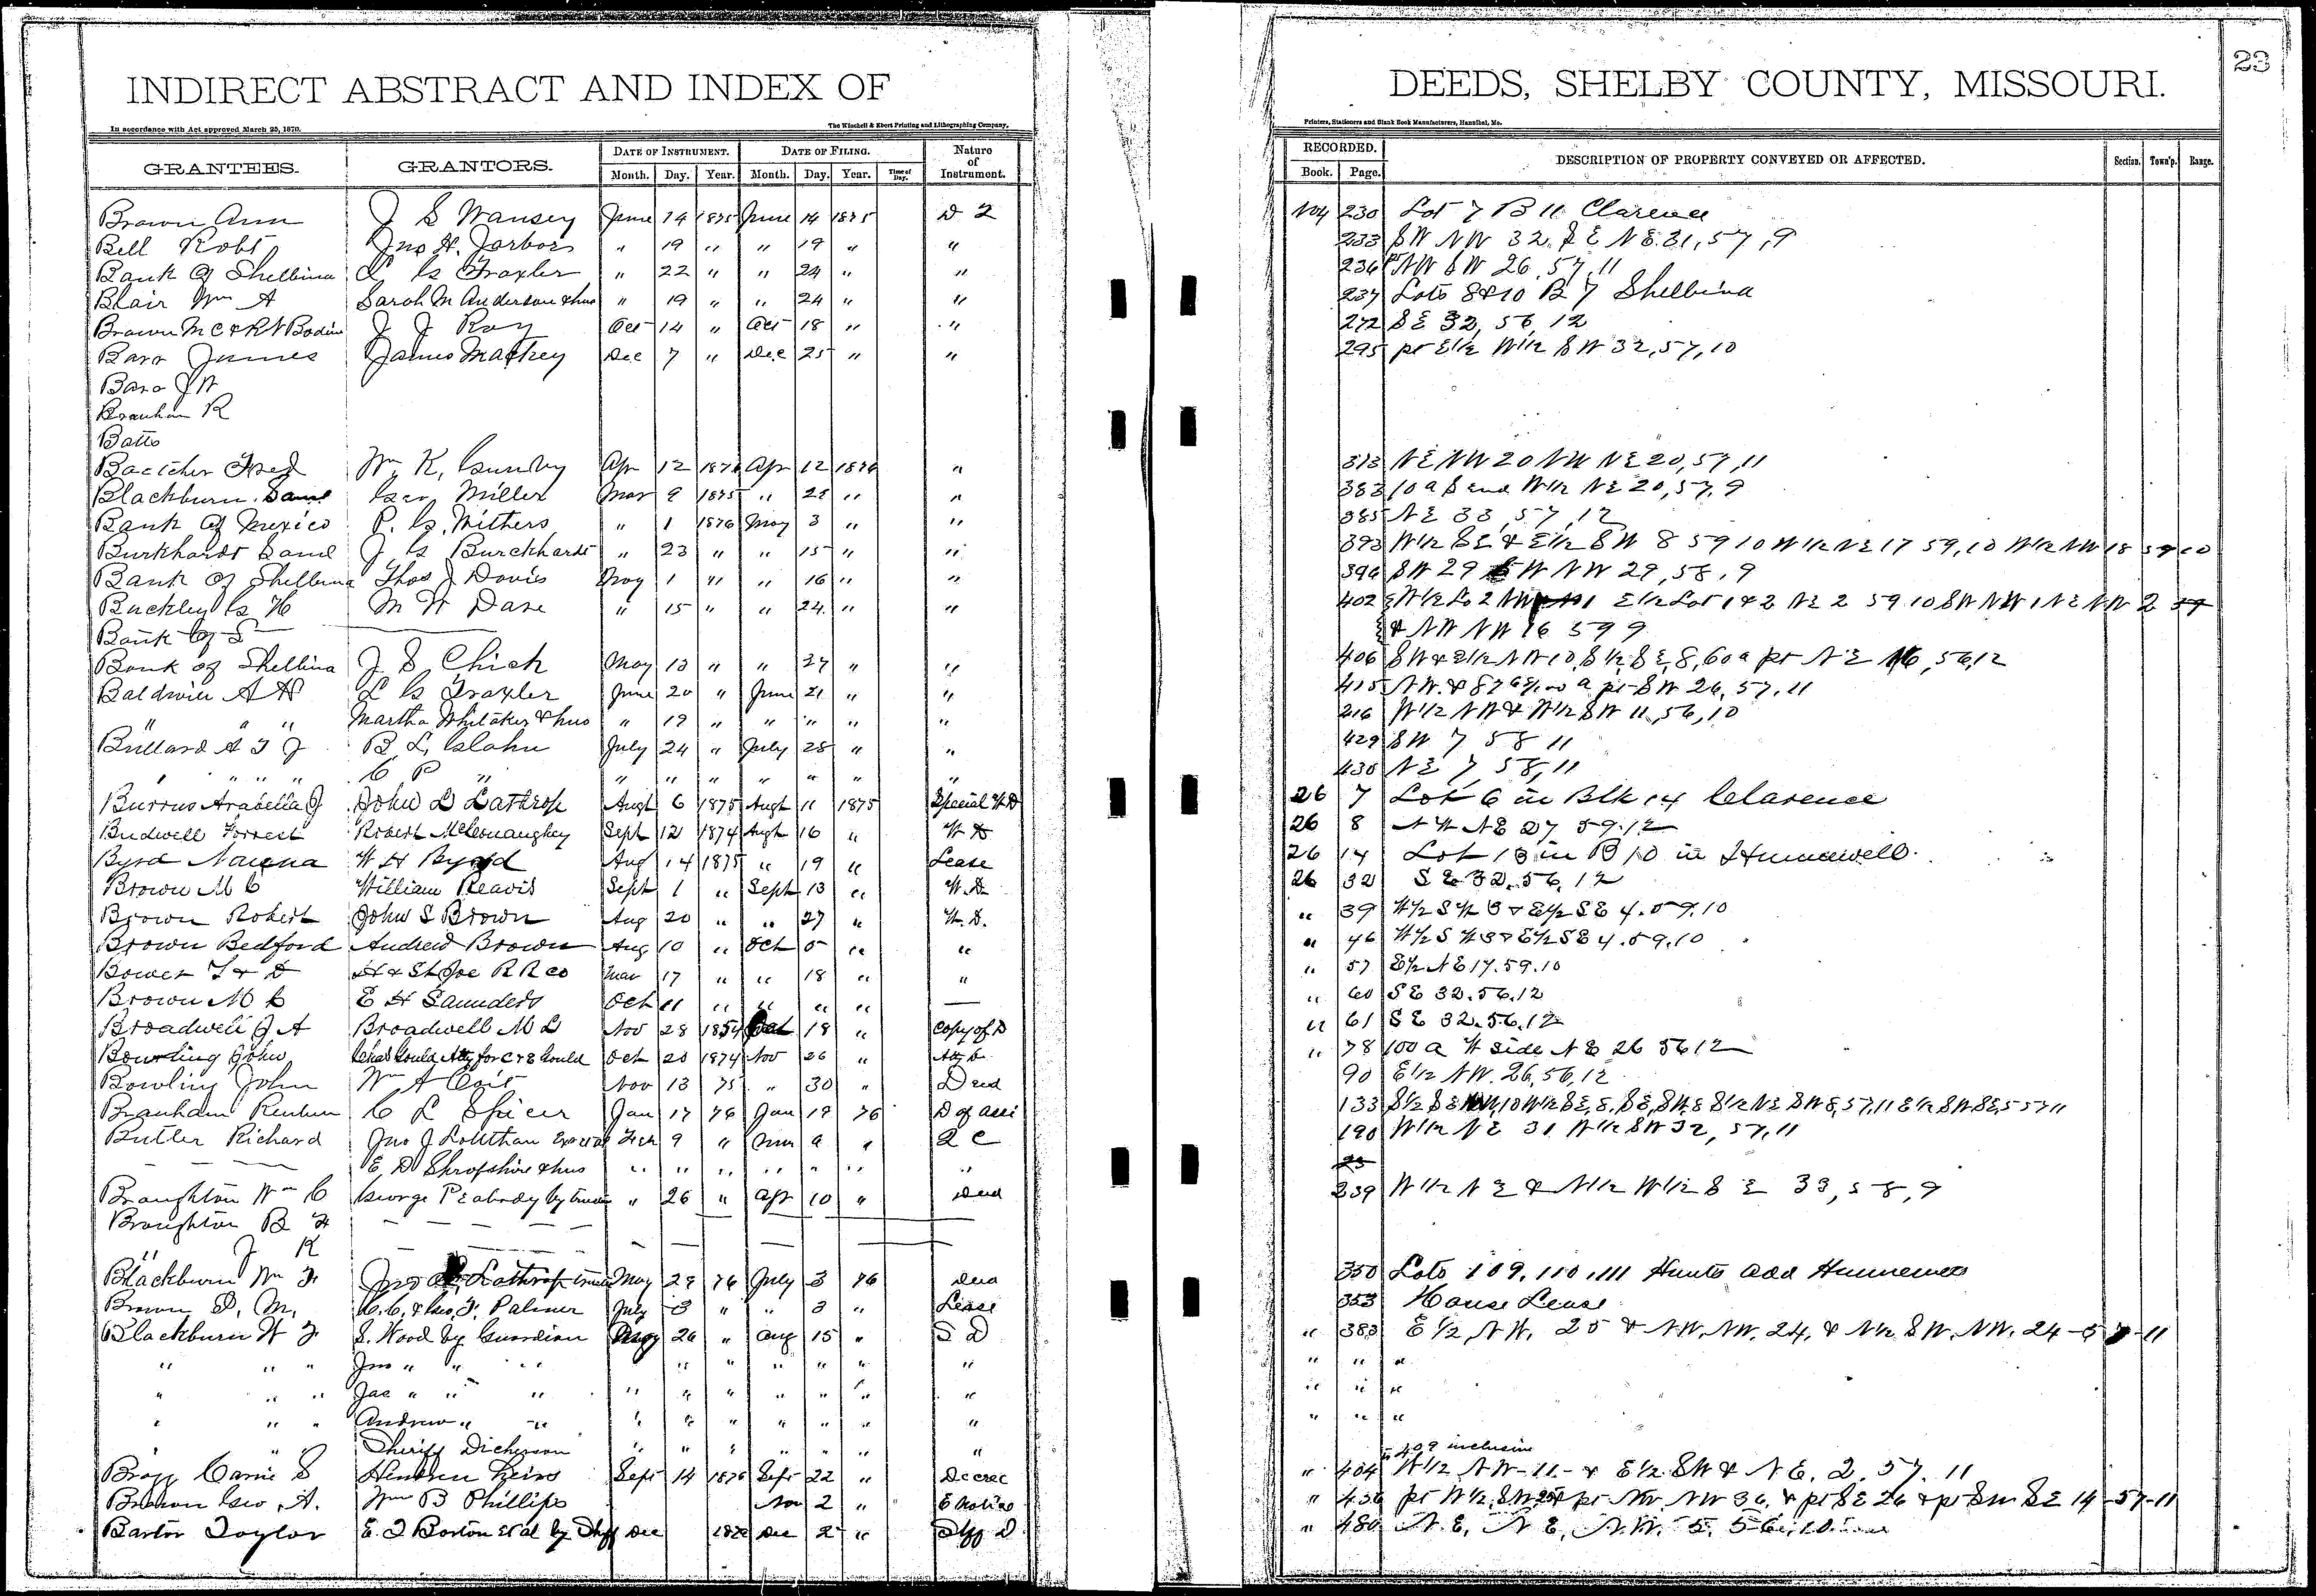 INDIRECT ABSTRACT AND INDEX OF DEEDS, SHELBY COUNTY, MISSOURI. 23
In accordance with Act approved March 25, 1870. The Winchell & Ebert Printing and Lithographing Company, Printers, Stationers and Blank Book Manufacturers, Hannibal, Mo.
GRANTEES. GRANTORS. DATE OF INSTRUMENT. DATE OF FILING. Nature of Instrument. RECORDED. DESCRIPTION OF PROPERTY CONVEYED OR AFFECTED. Section. Town'p. Range.
Month. Day. Year. Month. Day. Year. Time of Day. Book. Page.
Brown Ann J S Wansey June 14 1875 June 14 1875 D 2 230 Lot 7 B 11 Clarence
Bell Robt Jno H. Jarboes " 19 " " 19 " " 233 SW NW 32. SE NE 31, 57, 9
Bank of Shelbina L G Traxler " 22 " " 24 " " 236 pt NW SW 26, 57, 11
Blair Wm A Sarah M Anderson & hus " 19 " " 24 " " 237 Lots 8 & 10 B 7 Shelbina
Brown M C & R N Bodine J J Roy Oct 14 " Oct 18 " " 272 SE 32, 56, 12
Barr James James Mackey Dec 7 " Dec 25 " " 295 pt E1/2 W1/2 SW 32, 57, 10
Barr J W
Branham R
Batts
Fred Wm K. Gunby Apr 12 1876 Apr 12 1876 " 373 NE NW 20 NW NE 20, 57, 11
Blackburn Saml Geo Miller Mar 9 1875 " 22 " " 383 10 a S end W1/2 NE 20, 57, 9
Bank of Mexico P. G. Withers " 1 1876 May 3 " " 385 NE 33, 57, 12
Burkhardt Saml J G Burckhardt " 23 " " 15 " " 393 W1/2 SE & E1/2 SW 8 59 10 W1/2 NE 17 59, 10 W1/2 NW 18 59 10
Bank of Shelbina Thos J Davis May 1 " " 16 " " 396 SW 29 SW NW 29, 58, 9
Buckley G H M W Dare " 15 " " 24 " " 402 W1/2 Lo 2 NW 1 E1/2 Lot 1 & 2 NE 2 59 10 SW NW 1 NE NW 2 59
Bank of S & NW NW 16 59 9
Bank of Shelbina J S Chick May 13 " " 27 " " 406 SW & E1/2 NW 10, S1/2 SE, 8, 60 a pt NE 16, 56, 12
Baldwin A H L G Traxler June 20 " June 21 " " 415 NW. & a pt SW 26, 57, 11
" " " Martha Whitaker & hus " 19 " " " " " 216 W1/2 NW & W1/2 SW 11, 56, 10
Bullard A T J B L Glahn July 24 " July 28 " " 429 SW 7 58 11
" " " " C P " " " " " " " " 430 NE 7, 58, 11
Burrus Arabella J John L Lathrop Augt 6 1875 Augt 11 1875 Special W D 26 7 Lot 6 in Blk 14 Clarence
Bidwell Forrest Robert McConaughey Sept 12 1874 Augt 16 " W D 26 8 N W NE 27 59.12
Byrd W H Byrd Aug 14 1875 " 19 " Lease 26 14 Lot 13 in B 10 in Hunnewell
Brown M C William Reavis Sept 1 " Sept 13 " W.D. 26 32 S E 32.56.12
Brown Robert John S Brown Aug 20 " " 27 " W.D. " 39 W1/2 S W 3 & E1/2 SE 4.59.10
Brown Bedford Andrew Brown Aug 10 " Oct 5 " " " 46 W1/2 S W 3 & E1/2 SE 4.59.10
Bower T & D H & St Joe R R Co Mar 17 " " 18 " " " 57 E1/2 NE 17.59.10
Brown M C E H Saunders Oct 11 " " " " — " 60 SE 32.56.12
Broadwell J A Broadwell M L Nov 28 1854 Oct 18 " Copy of D " 61 SE 32.56.12
Bowling John Chas Gould Atty for C & S Gould Oct 20 1874 Nov 26 " Atty D " 78 100 a W side NE 26 56 12
Bowling John Wm A Nov 13 75 " 30 " Deed 90 E1/2 NW. 26, 56, 12
Branham Reuben C L Spicer Jan 17 76 Jan 19 76 D of assi 133
Butler Richard Jno J Feb 9 " Mar 9 " Q C 190 W1/2 NE 31 W1/2 SW 32, 57, 11
— — E D Shropshire & hus " " " " " " " 25
Broughton Wm C George Peabody by trustee " 26 " Apr 10 " Deed 239 W1/2 NE & N1/2 W1/2 SE 33, 58, 9
Broughton B F — — — — —
" J K — — — — —
Blackburn Wm F Jno L Lathrop trustee May 29 76 July 3 76 Deed 350 Lots 109, 110, 111 Hunts Add Hunnewell
Brown D. M. C. C. & Geo. F. Palmer July 3 " " 3 " Lease 353 House Lease
Blackburn W F S. Wood by Guardian May 26 " Aug 15 " S D " 383 E 1/2, N W, 25 & NW, NW, 24, & N1/2 SW, NW, 24-57-11
" " " Jno " " " " " " " " " " " " "
" " " Jas " " " " " " " " " " " " "
" " " Andrew " " " " " " " " " " " "
" " " Sheriff Dickerson " " " " " " "
- 409 inclusive
Bragg Carrie S Hendren heirs Sept 14 1876 Sept 22 " Decree " 404 W1/2 NW-11- & E1/2 SW & NE, 2, 57, 11
Brown Geo. A. Wm B Phillips Nov 2 " E Notice " 436 pt W1/2 SW 25 & pt NW, NW 36, & pt SE 26 & pt SW SE 14-57-11
Barton Taylor E. T Barton et al by Shff Dec Dec 2 " Shff D " 480 N.E, N E, N.W. 5, 56, 10